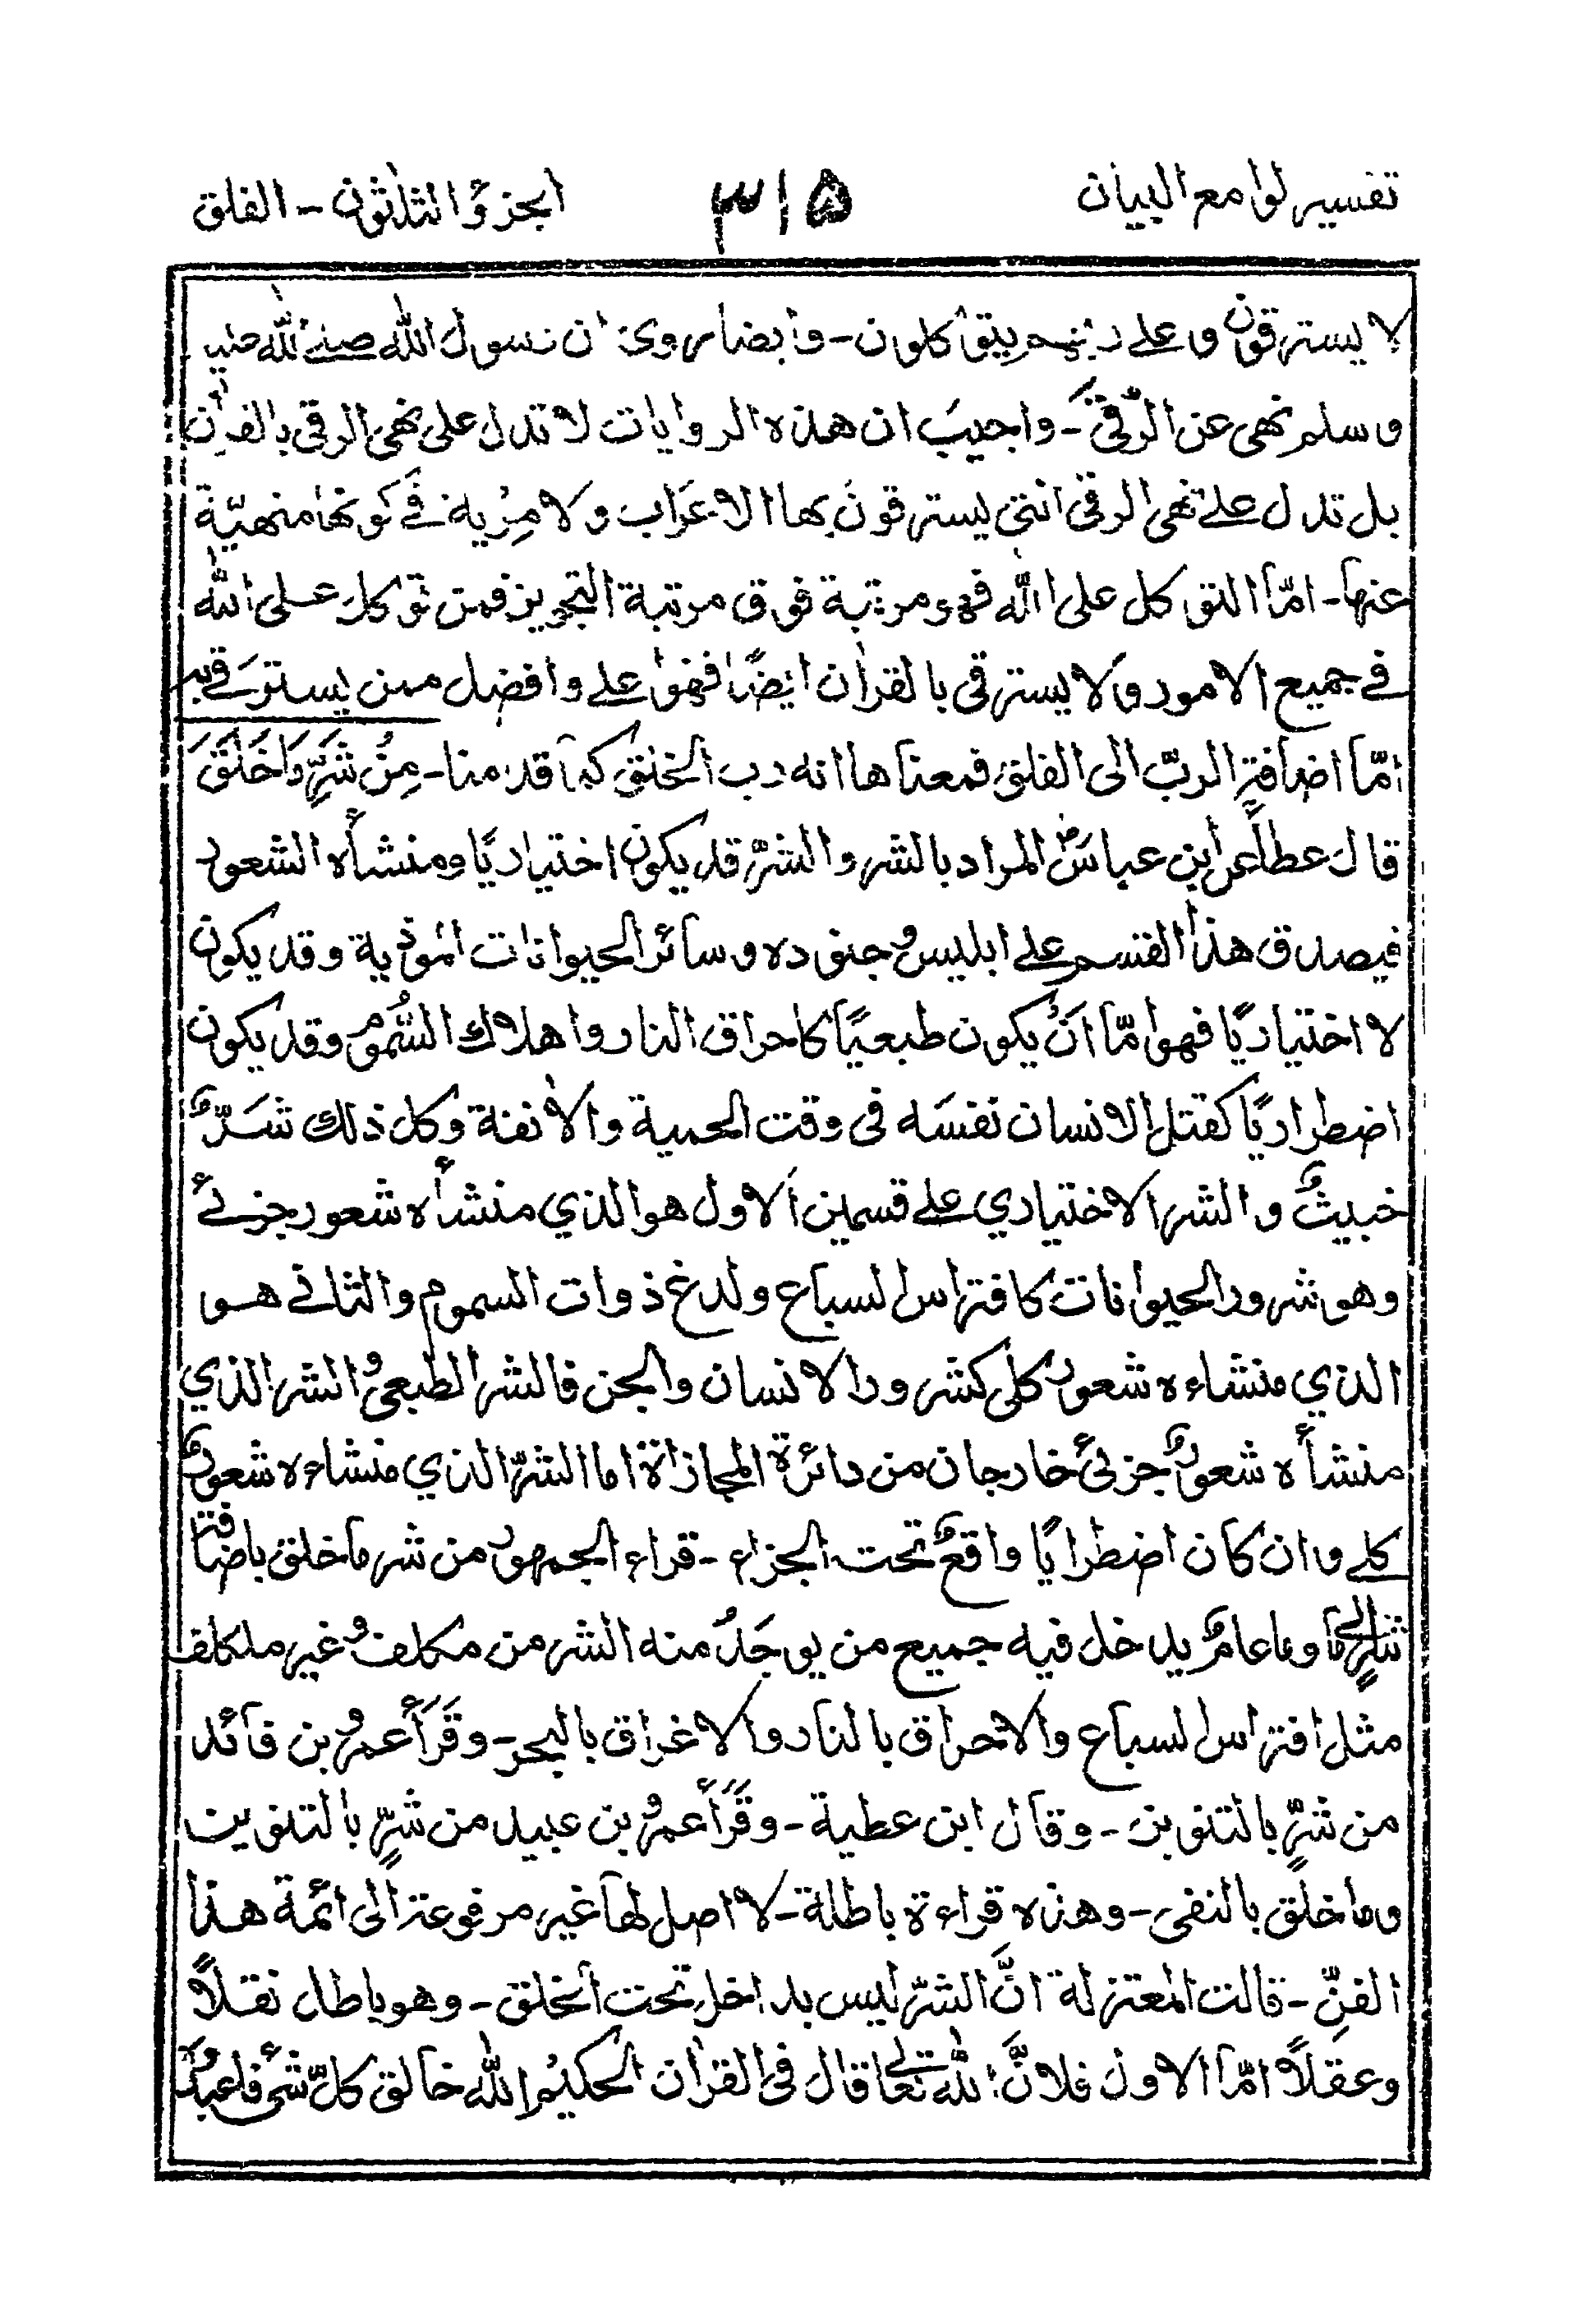 تفسير لوامع البيان ٣١٥ الجزؤ الثلاثون - الفلق
لا يسترقون وعلى ربهم يتوكلون - وايضا روى ان رسول الله صلى الله عليه
وسلم نهى عن الرُّقىٰ - واجيب ان هذه الروايات لا تدل على نهى الرقى بالقراٰن
بل تدل على نهى الرقى التى يسترقون بها الاعراب ولا مِرْية فى كونها منهيّة
عنها - امّا التوكل على الله فهو مرتبة فوق مرتبة التجويز فمن توكل على الله
فى جميع الامور ولا يسترقى بالقراٰن ايضًا فهو اعلى وافضل ممن يسترقى به
امّا اضافة الربّ الى الفلق فمعناها انه رب الخلق كما قدمنا - مِنْ شَرِّ مَا خَلَقَ
قال عطاء عن ابن عباسؓ المراد بالشر والشرّ قد يكون اختياريًا ومنشأه الشعور
فيصدق هذا القسم على ابليس وجنوده وسائر الحيوانات الموذية وقد يكون
لا اختياريًا فهو امّا انْ يكون طبعيًا كاحراق النار واهلاك السُّموم وقد يكون
اضطراريًا كقتل الانسان نفسَه فى وقت الحمية والانفة وكل ذلك شَرٌّ
خبيثٌ والشر الاختياري على قسمين الاول هو الذي منشأه شعور جزئى
وهو شرور الحيوانات كافتراس السباع ولدغ ذوات السموم والثانى هو
الذي منشاءه شعور كلى كشرور الانسان والجن فالشر الطبعى والشر الذي
منشأه شعورٌ جزئى خارجان من دائرة المجازاة اما الشرّ الذي منشاءه شعورٌ
كلى وان كان اضطرايًا واقعٌ تحت الجزاء - قراء الجمهور من شر ما خلق باضافة
شرٍّ الى ما وما عامٌ يدخل فيه جميع من يوجَدُ منه الشر من مكلف وغير ملكلف
مثل افتراس السباع والاحراق بالنار والاغراق بالبحر - وقَرَأَ عمرو بن فآئد
من شرٍّ بالتنوين - وقال ابن عطية - وقَرَأَ عمرو بن عبيد من شرٍّ بالتنوين
وما خلق بالنفى - وهذه قراءة باطلة - لا اصل لها غير مرفوعة الى ائمة هذا
الفنِّ - قالت المعتزلة انَّ الشرّ ليس بداخل تحت الخلق - وهو باطل نقلًا
وعقلًا امّا الاول فلانَّ الله تعالى قال فى القراٰن الحكيم الله خالق كلّ شئ فاعبدوه